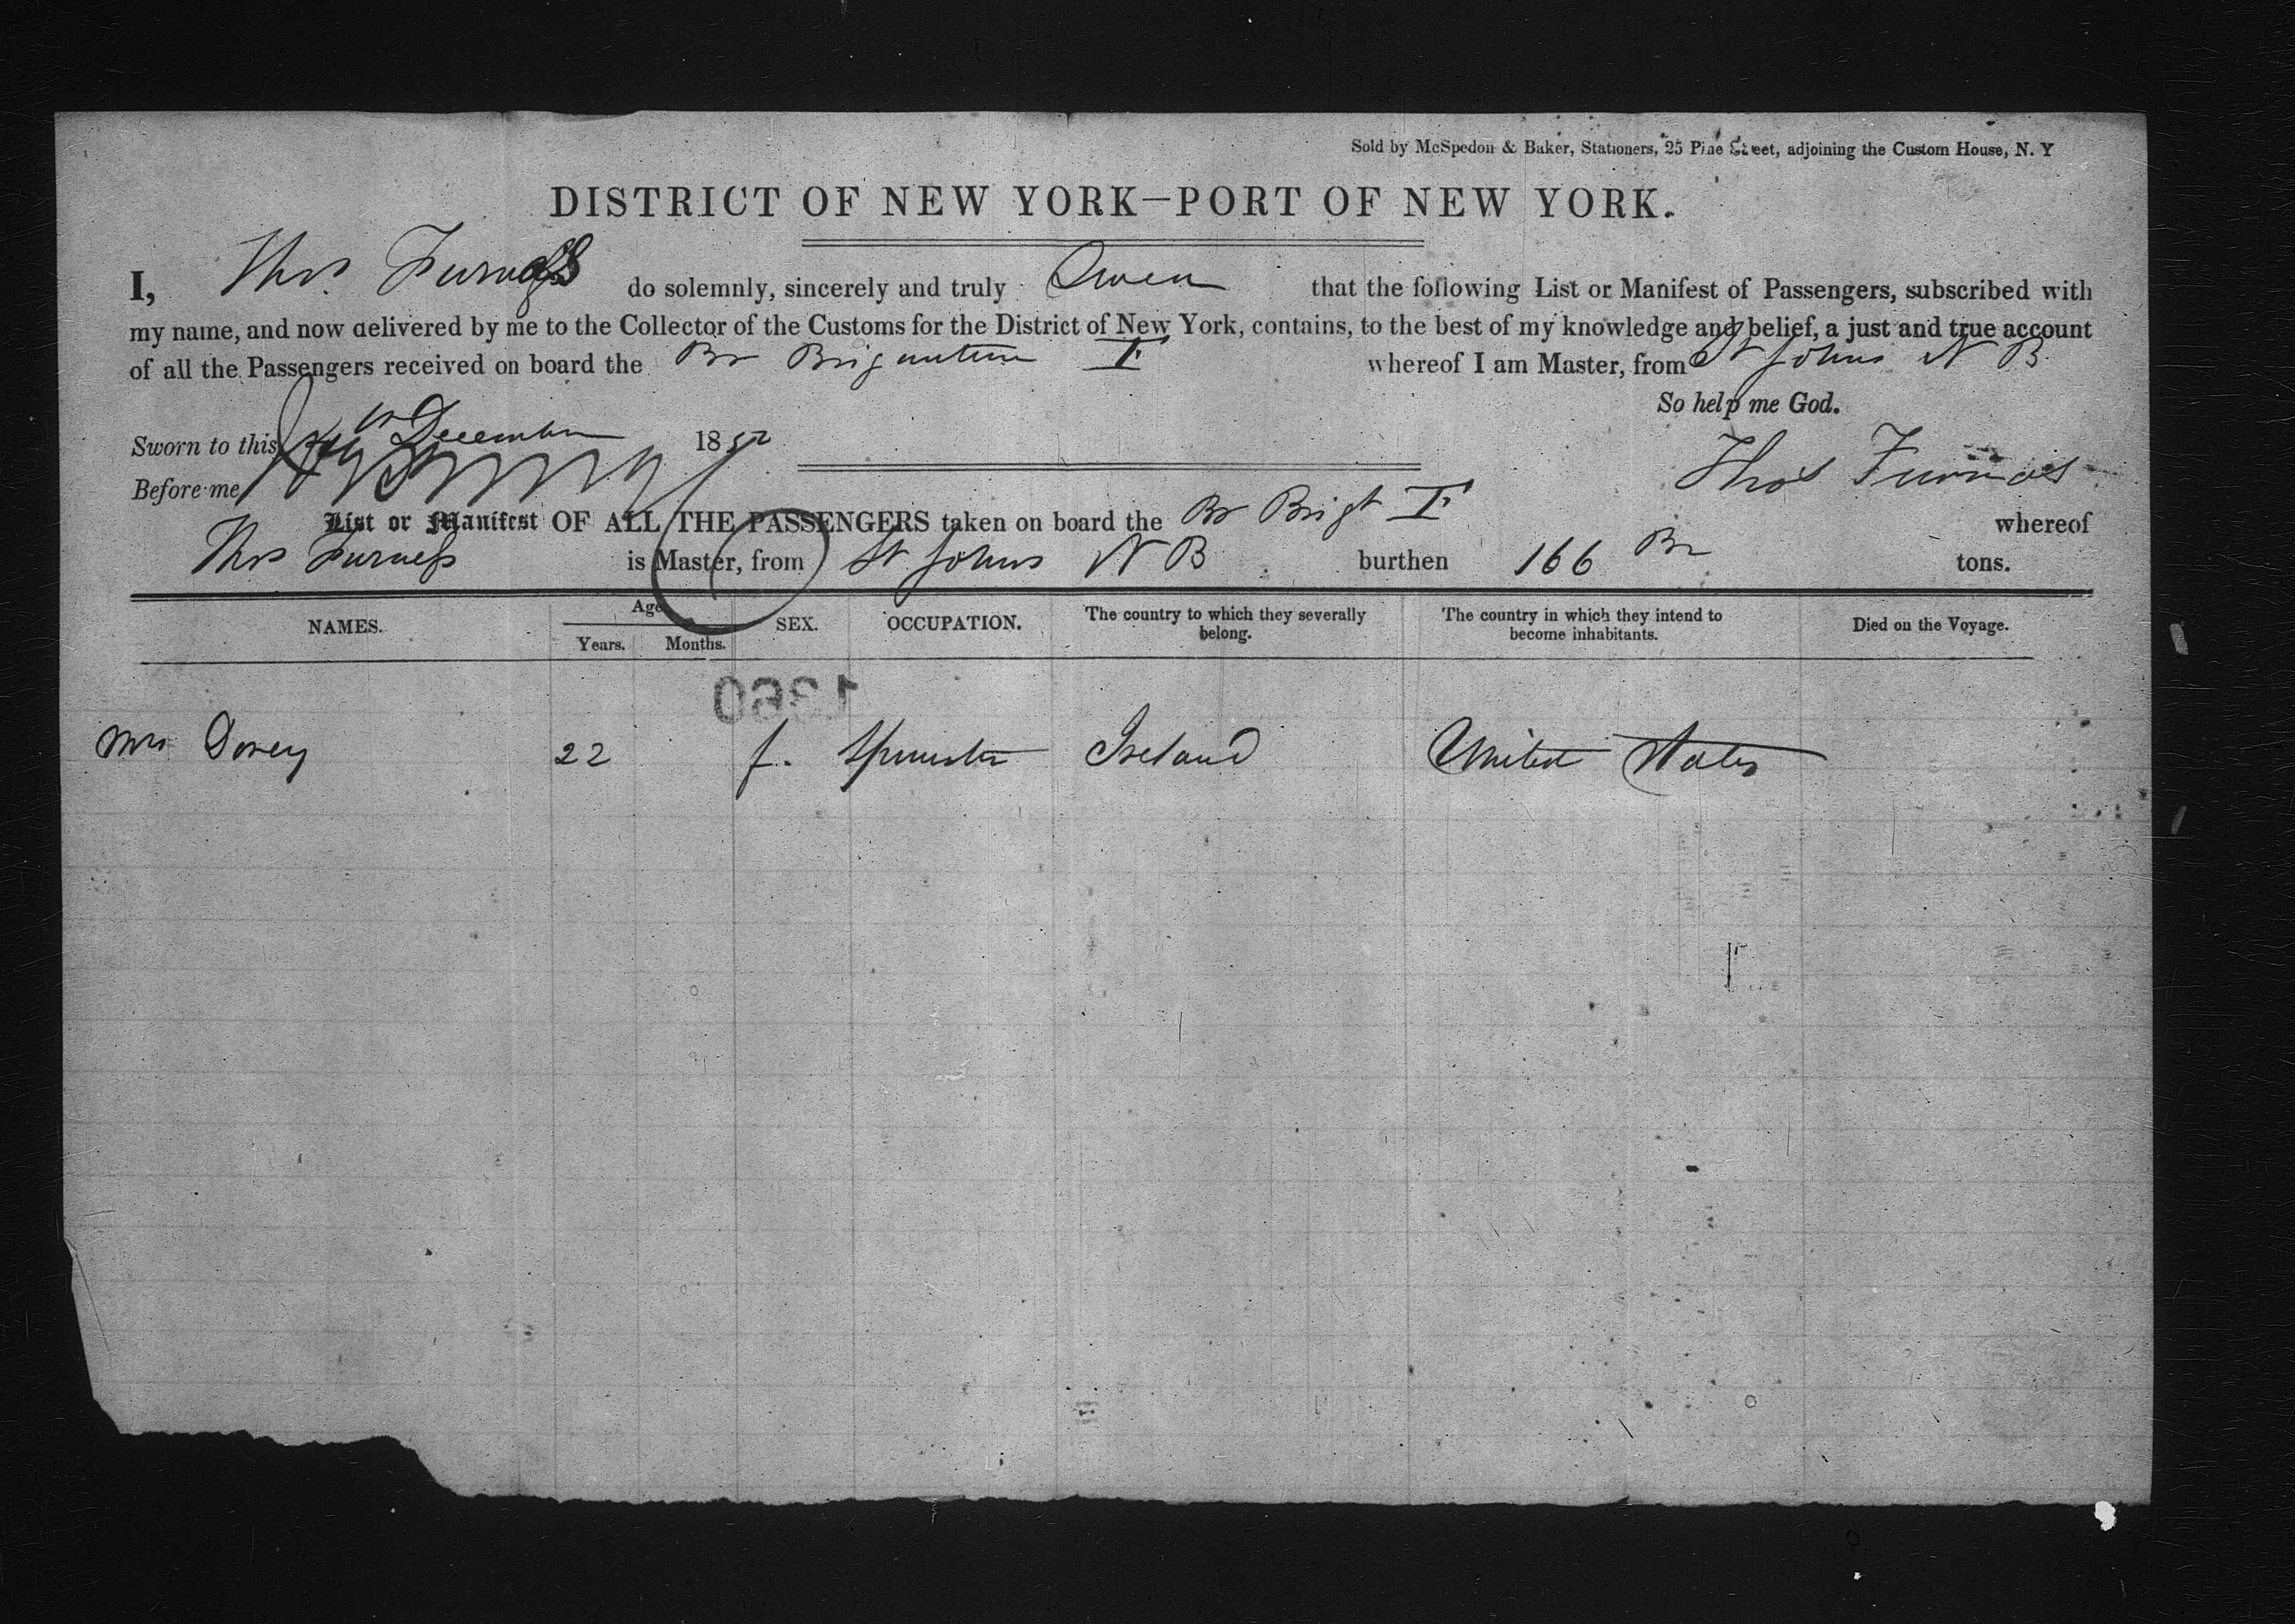 Sold by McSpedon & Baker, Stationers, 25 Pine Street, adjoining the Custom House, N. Y
DISTRICT OF NEW YORK—PORT OF NEW YORK.
I, Thos. Furness do solemnly, sincerely and truly Swear that the following List or Manifest of Passengers, subscribed with
my name, and now delivered by me to the Collector of the Customs for the District of New York, contains, to the best of my knowledge and belief, a just and true account
of all the Passengers received on board the Br Brigantine I whereof I am Master, from St Johns N B
So help me God.
Sworn to this December 1852
Thos Furness
Before me
List or Manifest OF ALL THE PASSENGERS taken on board the Br Brigt I whereof
Thos Furness is Master, from St Johns N B burthen 166 Br tons.
NAMES. Age SEX. OCCUPATION. The country to which they severally belong. The country in which they intend to become inhabitants. Died on the Voyage.
Years. Months.
1360
Mrs Dovey 22 f. Spinster Ireland United States